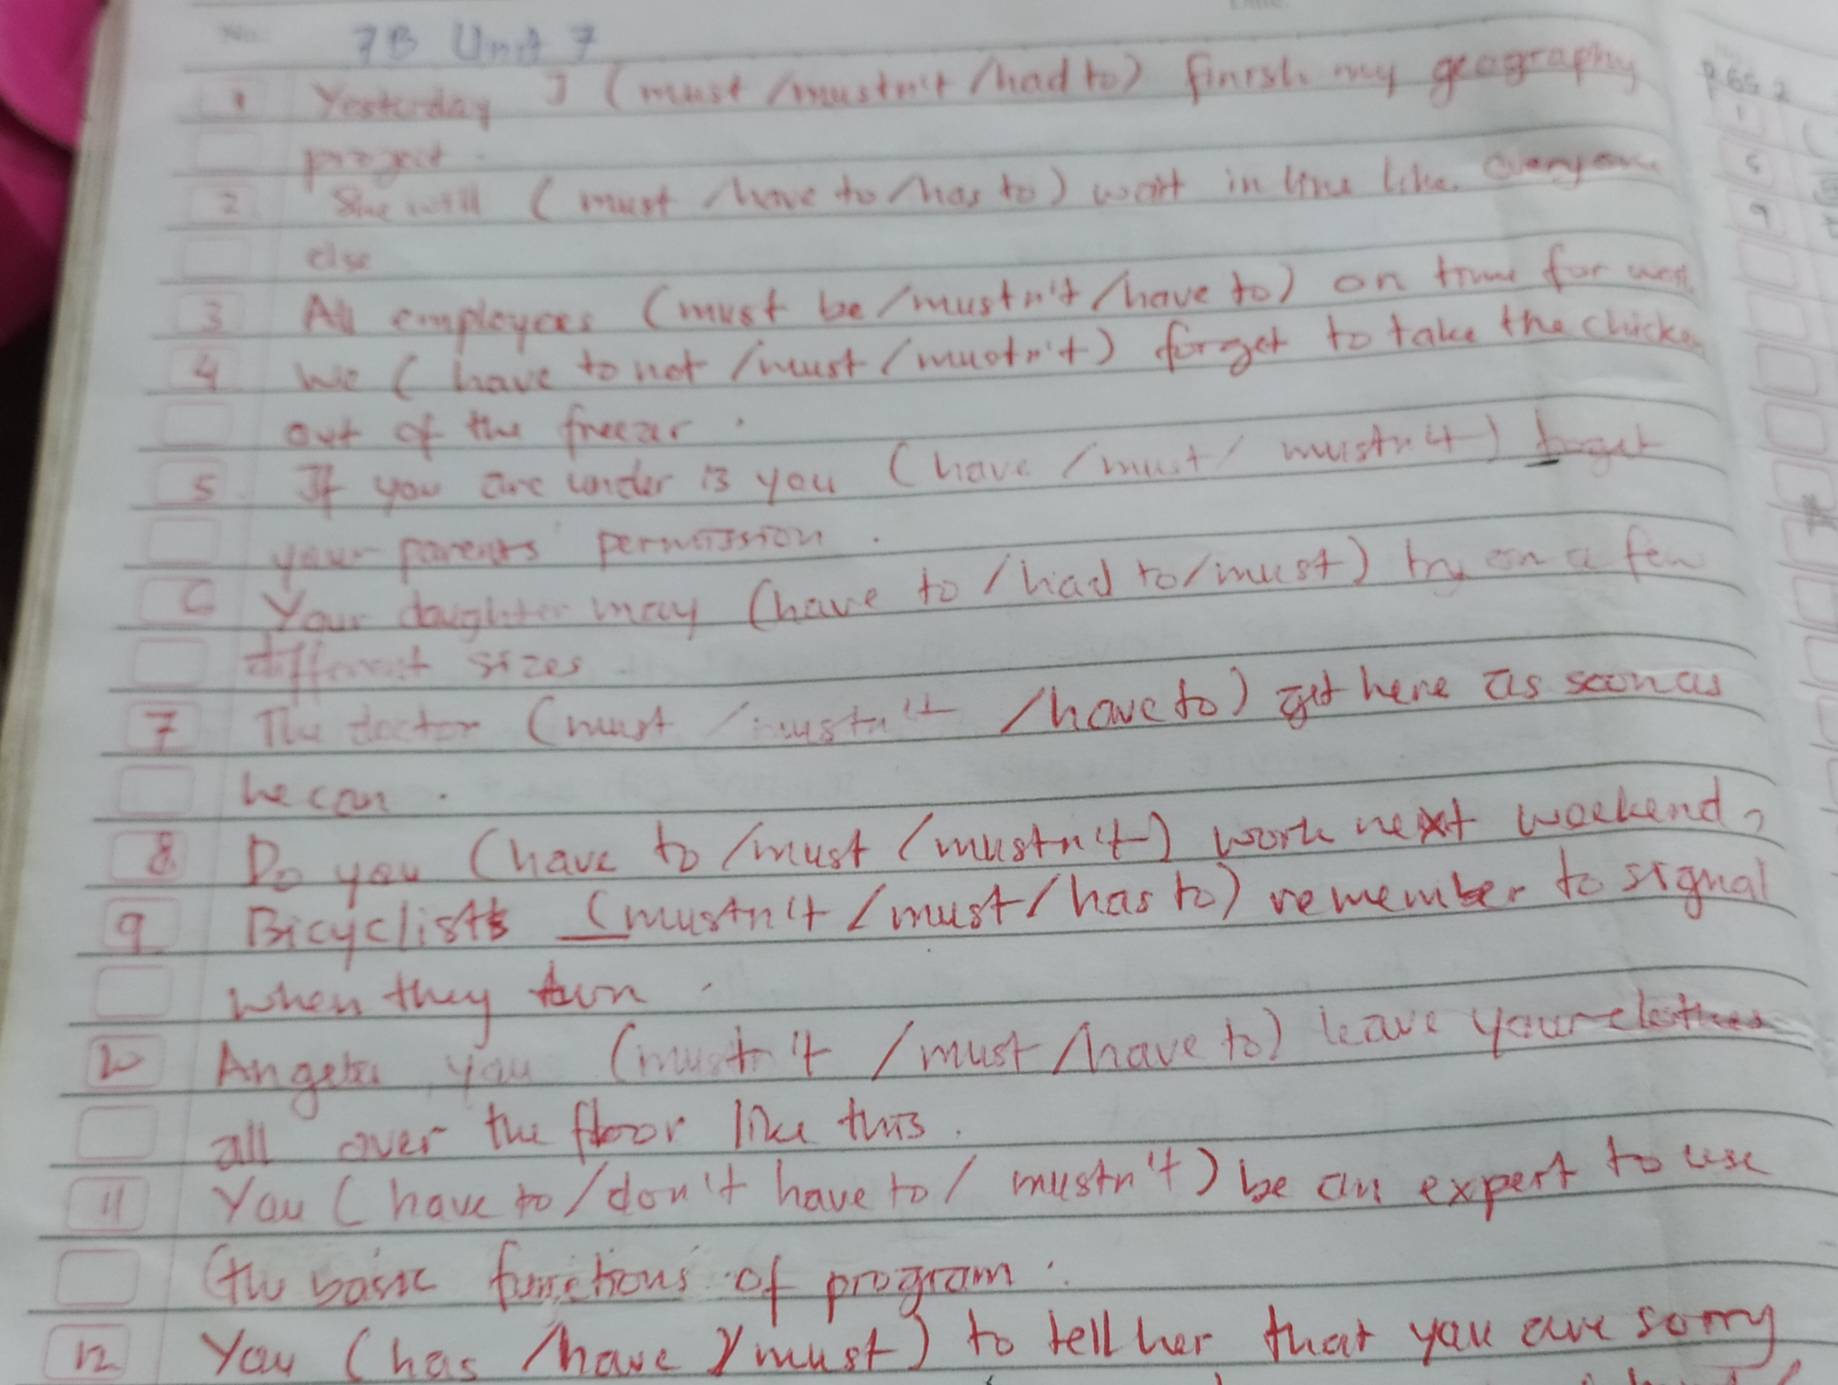 No.
7B Unit 7
1 Yesterday I (must /mustn't /had to) finish my geography
project.
2 She will (must /have to /has to) wait in line like everyone
else
3 All employees (must be /mustn't /have to) on time for
4 We (have to not /must /mustn't) forget to take the chicken
out of the freezer.
5 If you are under 13 you (have /must / mustn't) forget
your parents permission.
6 Your daughter may (have to /had to /must) try on a few
different sizes.
7 The doctor (must /mustn't /have to) get here as soon as
he can.
8 Do you (have to /must /mustn't) work next weekend?
9 Bicyclists (mustn't /must /has to) remember to signal
when they turn.
10 Angela you (mustn't /must /have to) leave your clothes
all over the floor like this.
11 You (have to /don't have to / mustn't) be an expert to use
the basic functions of program.
12 You (has /have /must) to tell her that you are sorry